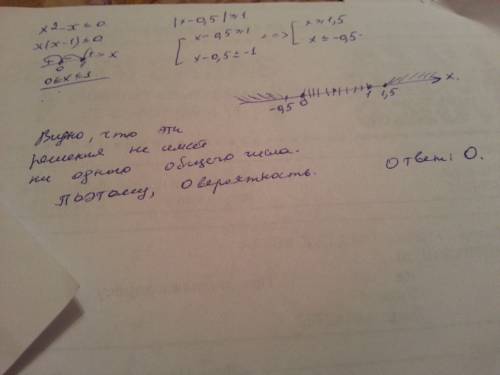 x² - x ≤ 0
x(x-1) ≤ 0
0 1 x
0 ≤ x ≤ 1
|x-0,5| ≥ 1
[ x-0,5 ≥ 1
x-0,5 ≤ -1
<=> [ x ≥ 1,5
x ≤ -0,5.
-0,5 0 1 1,5 x.
Видно, что эти
решения не имеет
ни одного общего числа.
Поэтому, 0 вероятность.
Ответ: 0.